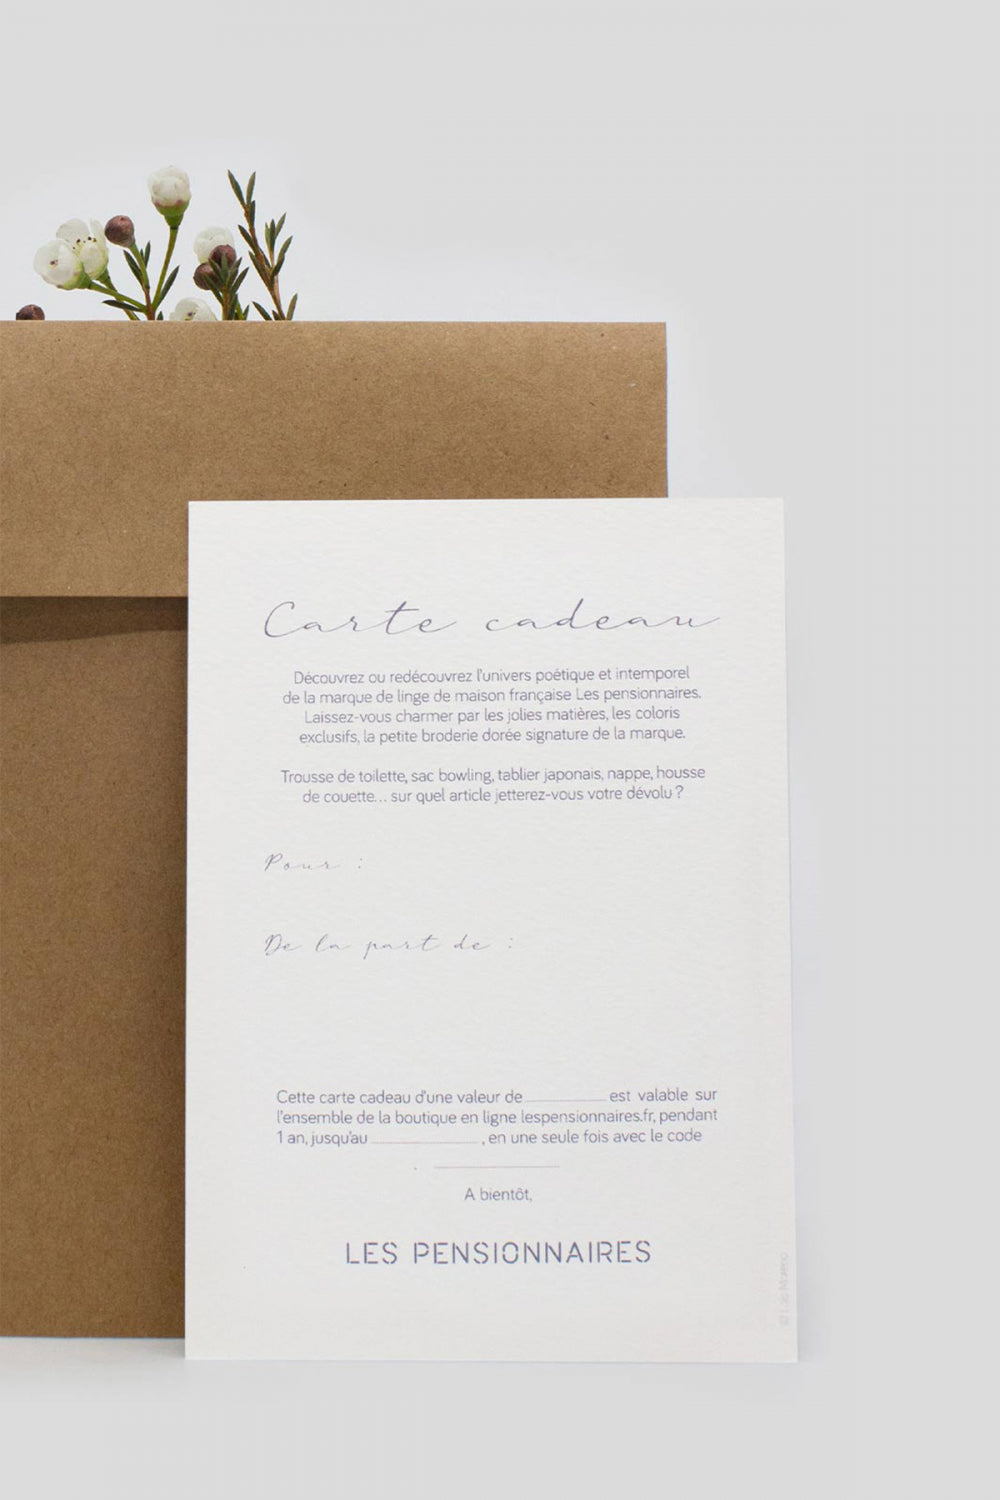 Carte cadeau
Découvrez ou redécouvrez l'univers poétique et intemporel
de la marque de linge de maison française Les pensionnaires.
Laissez-vous charmer par les jolies matières, les coloris
exclusifs, la petite broderie dorée signature de la marque.
Trousse de toilette, sac bowling, tablier japonais, nappe, housse
de couette... sur quel article jetterez-vous votre dévolu ?
Pour :
De la part de :
Cette carte cadeau d'une valeur de est valable sur
l'ensemble de la boutique en ligne lespensionnaires.fr, pendant
1 an, jusqu'au , en une seule fois avec le code
A bientôt,
LES PENSIONNAIRES